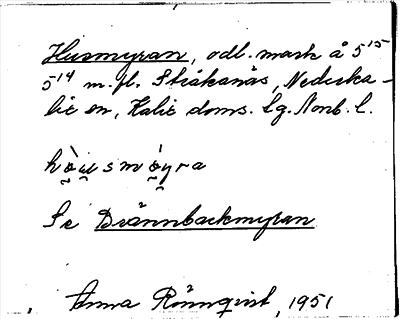 Husmyran, odl. mark å 5¹⁵
5¹⁴ m.fl. Stråkanäs, Nederka-
lix sn, Kalix doms. lg. Norrb. l.
hòusmòyra
Se Brännbackmyran
Anna Rönnqvist, 1951